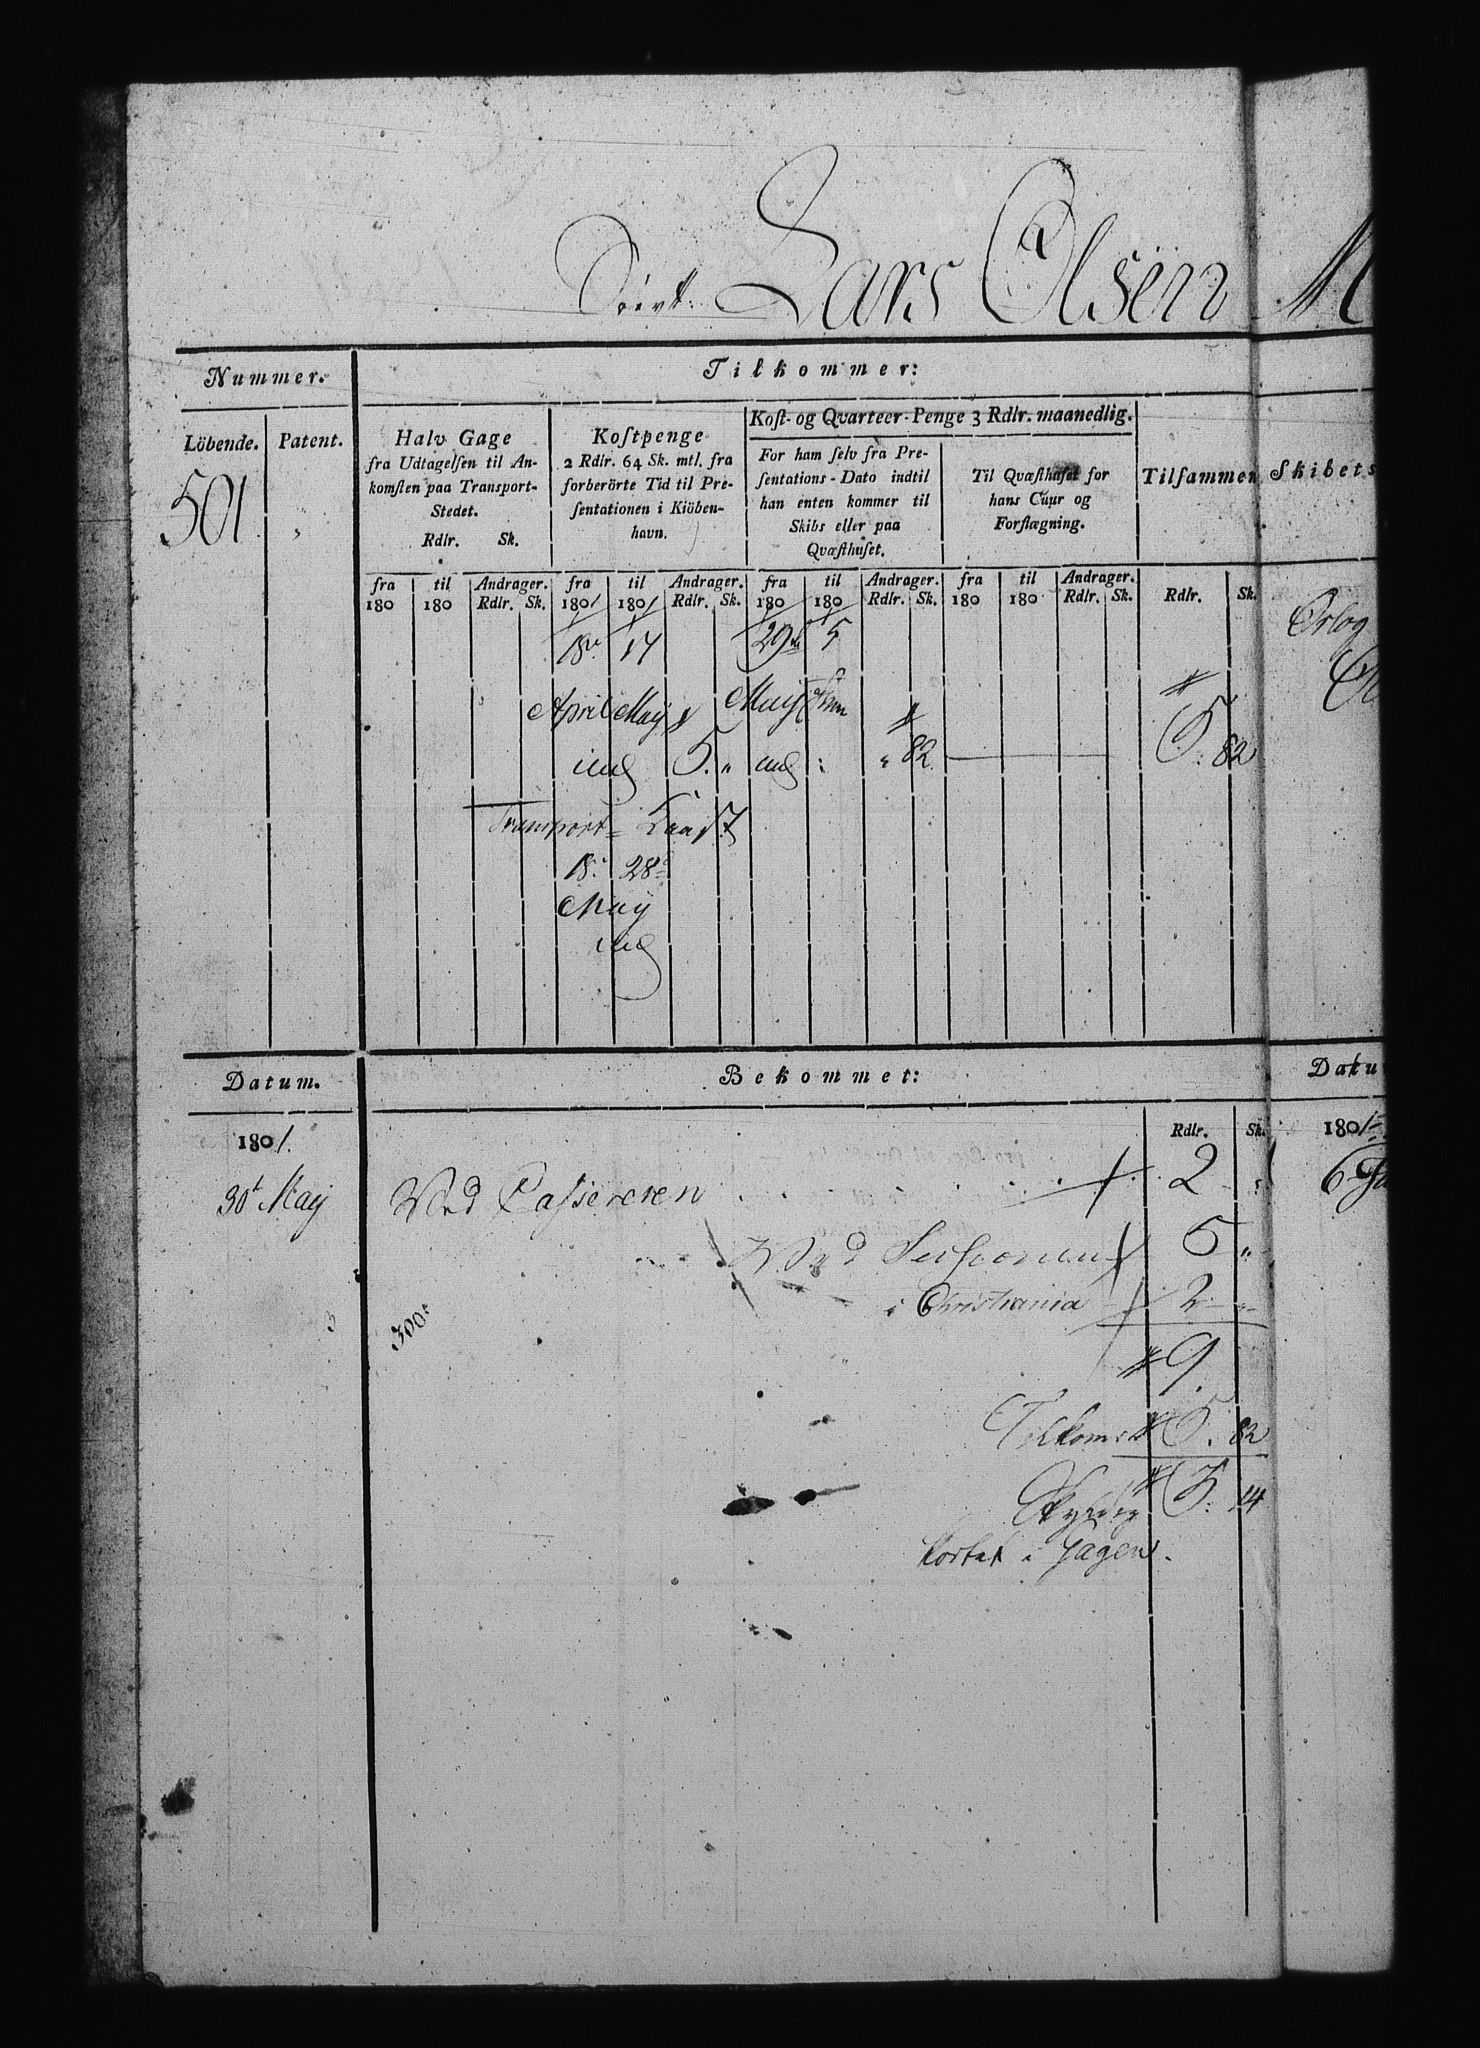 Lars Olsen M
Nummer.
Tilkommer:
Löbende.
Patent.
Halv Gage
fra Udtagelsen til An-
komsten paa Transport-
Stedet.
Rdlr. Sk.
Kostpenge
2 Rdlr. 64 Sk. mtl. fra
forberörte Tid til Pre-
sentationen i Kiöben-
havn.
Kost- og Qvarteer-Penge 3 Rdlr. maanedlig.
For ham selv fra Pre-
sentations-Dato indtil
han enten kommer til
Skibs eller paa
Qvæsthuset.
Til Qvæsthuset for
hans Cuur og
Forplægning.
Tilsammen
Skibets
501.
fra til Andrager. fra til Andrager. fra til Andrager. fra til Andrager.
180 180 Rdlr. Sk. 1801 1801 Rdlr. Sk. 180 180 Rdlr. Sk. 180 180 Rdlr. Sk. Rdlr. Sk.
18 17 29 5
Orlog
April May May
5. " 82 5. 82
Transport
18 28
May
Datum.
Bekommet:
Datu
1801.
Rdlr. Sk.
1801
30 May Ved Passeren 2
6
Ved 5 "
i Christiania 2
300
9
Tilkom 5. 82
3. 14
i